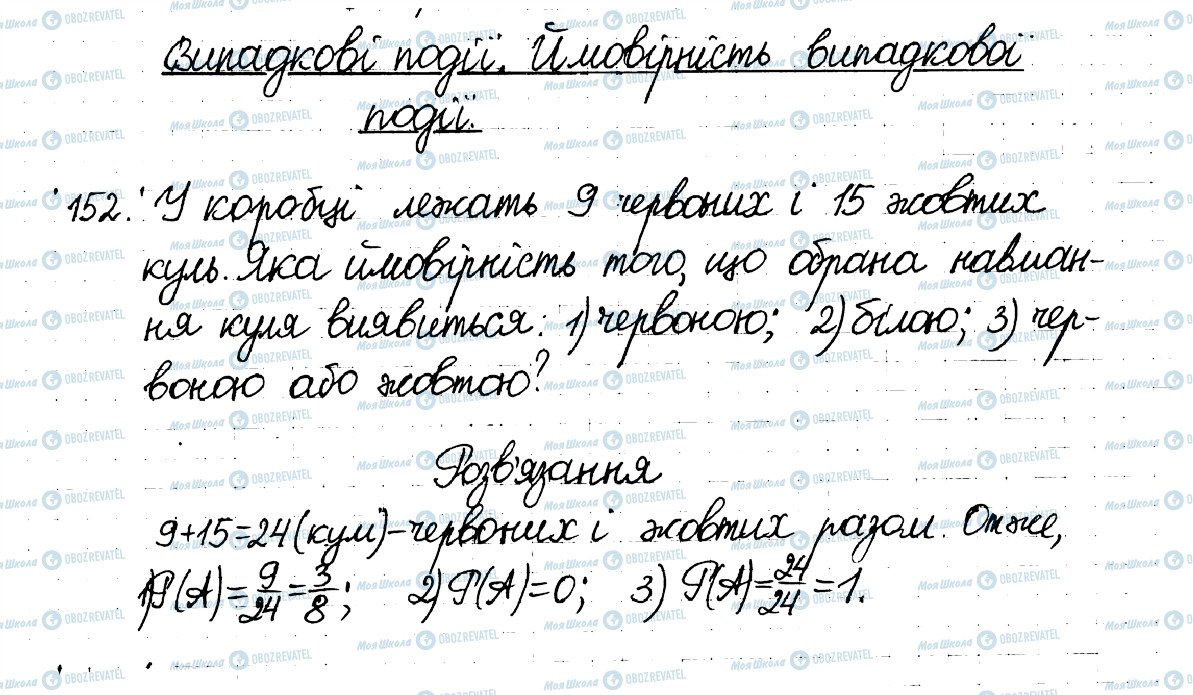 Випадкові події. Ймовірність випадкової
події.
152. У коробці лежать 9 червоних і 15 жовтих
куль. Яка ймовірність того, що обрана навман-
ня куля виявиться: 1) червоною; 2) білою; 3) чер-
воною або жовтою?
Розв'язання
9+15=24 (кулі) - червоних і жовтих разом. Отже,
1) P(A)=9/24=3/8; 2) P(A)=0; 3) P(A)=24/24=1.
Моя Школа OBOZREVATEL